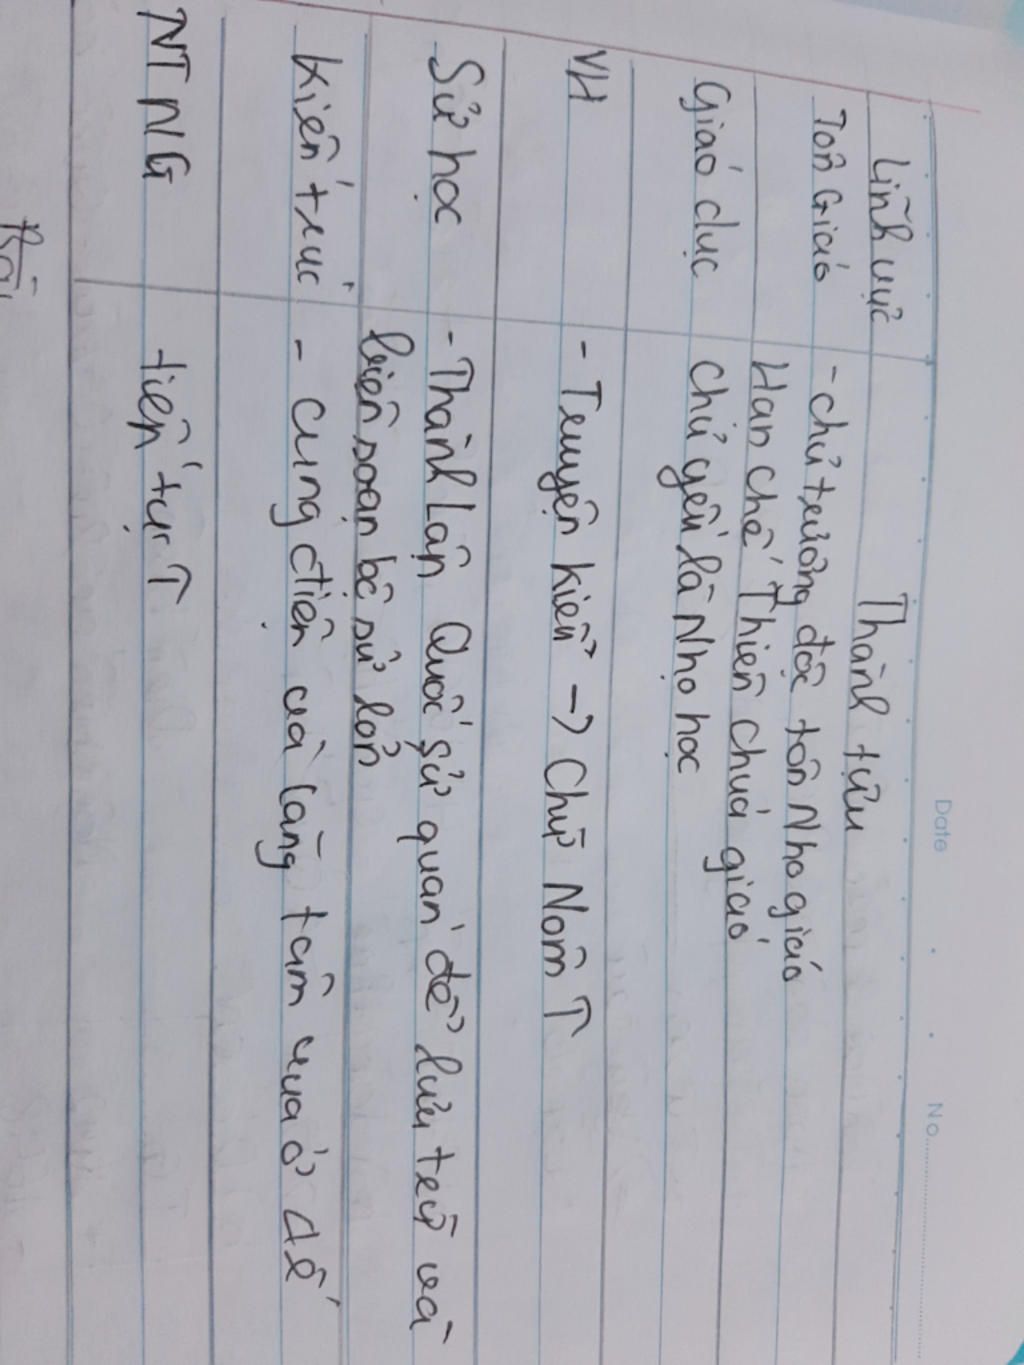 Date
No
Lĩnh vực Thành tựu
Tôn Giáo - chủ trương độc tôn Nho giáo
Hạn chế Thiên chúa giáo
Giáo dục chủ yếu là Nho học
VH - Truyện Kiều -> Chữ Nôm ↑
Sử học - Thành lập Quốc sử quán để lưu trữ và
biên soạn bộ sử lớn
Kiến trúc - cung điện và lăng tẩm vua ở
NT NG tiếp tục ↑